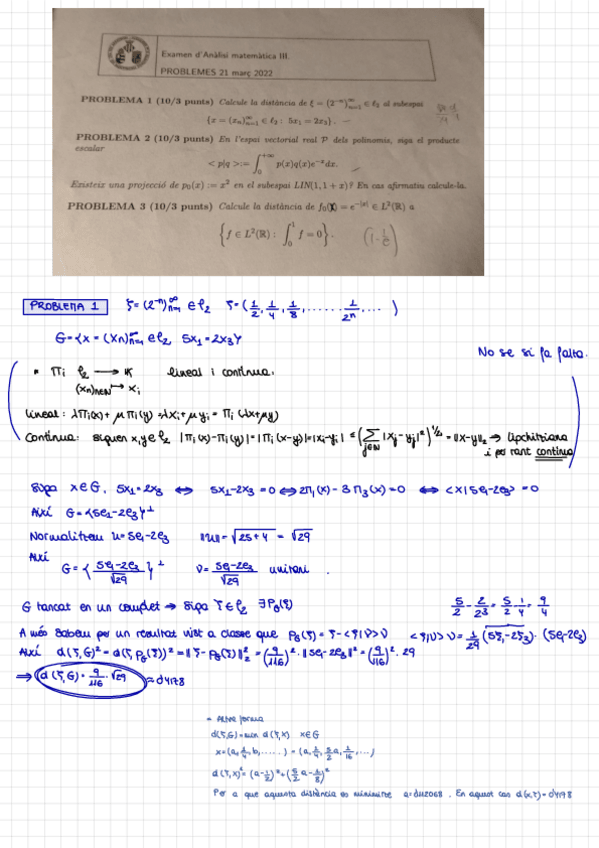 Examen d'Anàlisi matemàtica III.
PROBLEMES 21 març 2022
PROBLEMA 1 (10/3 punts) Calcule la distància de ξ = (2⁻ⁿ)∞n=1 ∈ ℓ₂ al subespai
{x = (xₙ)∞n=1 ∈ ℓ₂ : 5x₁ = 2x₃}.
PROBLEMA 2 (10/3 punts) En l'espai vectorial real P dels polinomis, siga el producte
escalar
< p|q >:= ∫₀^{+∞} p(x)q(x)e⁻ˣdx.
Existeix una projecció de p₀(x) := x² en el subespai LIN(1, 1 + x)? En cas afirmatiu calcule-la.
PROBLEMA 3 (10/3 punts) Calcule la distància de f₀(x) = e^{-|x|} ∈ L²(ℝ) a
{f ∈ L²(ℝ) : ∫₀¹ f = 0}. (1 - 1/e)
PROBLEMA 1 ξ=(2⁻ⁿ)∞n=1 ∈ ℓ₂ ξ=(1/2, 1/4, 1/8, ...... 1/2ⁿ, ...)
G={x = (xn)∞n=1 ∈ ℓ₂ 5x₁=2x₃}
No se si fa falta.
• πi ℓ₂ → K lineal i contínua.
(xn)n∈N ↦ xi
Lineal: λπi(x)+ μπi(y)=λxi+μyi = πi(λx+μy)
Contínua: siguen x,y∈ℓ₂ |πi(x)-πi(y)|=|πi(x-y)|=|xi-yi| ≤ (∑j∈N |xj-yj|²)^{1/2} = ||x-y||₂ → Lipchitziana
i per tant contínua
Siga x∈G, 5x₁=2x₃ ⟺ 5x₁-2x₃=0 ⟺ 2π₁(x)-3π₃(x)=0 ⟺ <x|5e₁-2e₃>=0
Així G={5e₁-2e₃}⊥
Normalitzem u=5e₁-2e₃ ||u||=√25+4 = √29
Així
G={5e₁-2e₃/√29}⊥ v=5e₁-2e₃/√29 unitari.
G tancat en un complet → siga ξ∈ℓ₂ ∃PG(ξ)
5/2 - 2/2³ = 5/2 - 1/4 = 9/4
A més sabem per un resultat vist a classe que PG(ξ) = ξ-<ξ|v>v <ξ|v>v = 1/29 (5ξ₁-2ξ₃)·(5e₁-2e₃)
Així d(ξ,G)²=d(ξ,PG(ξ))²=||ξ-PG(ξ)||₂²=(9/116)²·||5e₁-2e₃||²=(9/116)²·29
⇒ d(ξ,G)=9/116·√29 ≈ 0'4178
- Altra forma
d(ξ,G)=min d(ξ,x) x∈G
x=(a,1/4,b,.....) = (a,1/4,5/2a,1/16,...)
d(ξ,x)²=(a-1/2)²+(5/2a-1/8)²
Per a que aquesta distància es minimitze a=0'112068. En aquest cas d(x,ξ)=0'4178